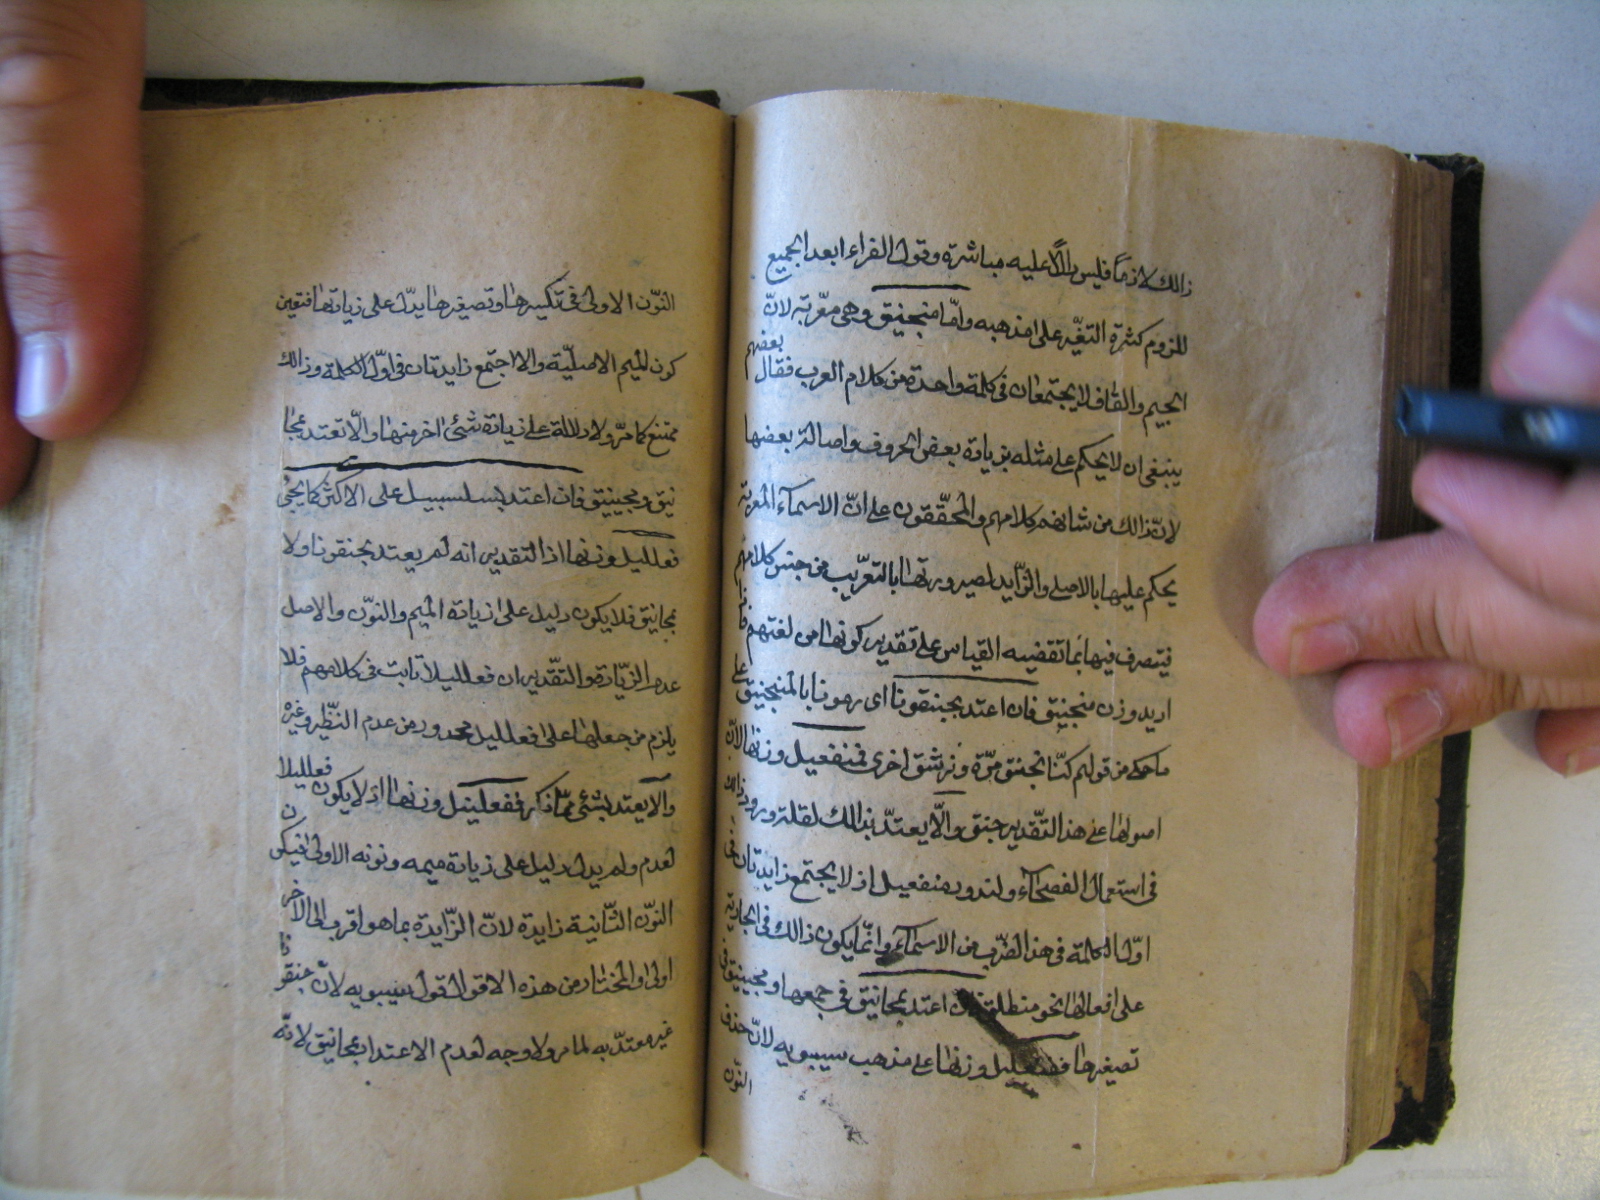 ذالك لازماً فليس دالاً عليه مباشرة وقول الفراء ابعد الجميع
للزوم كثرة التغيّر على مذهبه وامّا منجنيق وهى معرّبة لانّ
الجيم والقاف لا يجتمعان فى كلمة واحدة من كلام العرب فقال بعضهم
ينبغى ان لا يحكم على مثله بزيادة بعض الحروف واصالة بعضها
لانّ ذالك من شانهم كلامهم والمحقّقون على انّ الاسمآء المعربة
يحكم عليها بالاصلى والزّايد لصيرورتها بالتعريب من جنس كلامهم
فيتصرف فيها بما تقضيه القياس على تقدير كونها من لغتهم فاذا
اريد وزن منجنيق فان اعتد بجنقونا اى رمونا بالمنجنيق على
ما حكى من قولهم كنّا نجنق مرّة ونرشق اخرى فمنفعيل وزنها لانّ
اصولها على هذا التّقدير جنق والّا يعتدّ بذالك لقلته ورود ذالك
فى استعمال الفصحآء ولندور منفعيل اذ لا يجتمع زايدتان فى
اوّل الكلمة فى هذا الضّرب من الاسمآء وانّما يكون ذالك فى الجارية
على افعالها نحو منطلق فان اعتد بمجانيق فى جمعها ومجينيق فى
تصغيرها ففنعليل وزنها على مذهب سيبويه لانّ حذف
النّون
النّون الاولى فى تكسيرها وتصغيرها يدلّ على زيادتها فتعين
كون الميم الاصليّة والا اجتمع زايدتان فى اوّل الكلمة وذالك
ممتنع كما مرّ ولا دلالة على زيادة شئ اخر منها والّا تعتد بمجا
نيق ومجينيق فان اعتد بسلسبيل على الاكثر كما يجئ
فعلليل وزنها اذ التقدير انه لم يعتد بجنقونا ولا
مجانيق فلا يكون دليل على زيادة الميم والنّون والاصل
عدم الزّيادة والتّقدير ان فعلليلا ثابت فى كلامهم فلا
يلزم من جعلها على فعلليل محدور من عدم النّظير وغيره
والا يعتد بشئ ممّا ذكر ففعلنيل وزنها اذ لا يكون فعلليلا
لعدم ولم يدل دليل على زيادة ميمه ونونه الاولى فيكون
النّون الثّانية زايدة لانّ الزّايدة بما هو اقرب الى الآخر
اولى والمختار من هذه الاقوال قول سيبويه لانّ جنقونا
غير معتدّ به لما مر ولا وجه لعدم الاعتداد بمجانيق لانّه